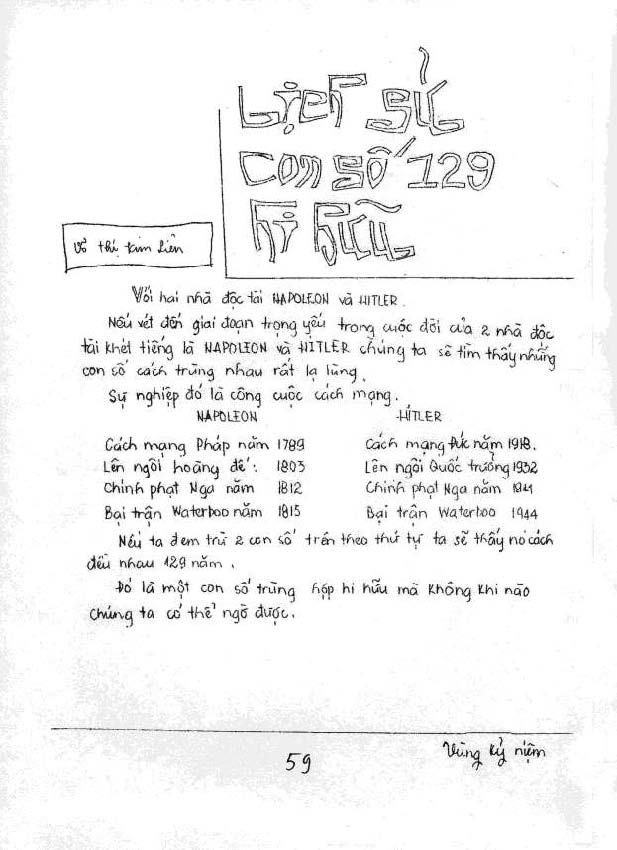 Lịch sử
con số 129
hi hữu
Võ thị Kim Liên
Với hai nhà độc tài NAPOLEON và HITLER.
Nếu xét đến giai đoạn trọng yếu trong cuộc đời của 2 nhà độc
tài khét tiếng là NAPOLEON và HITLER chúng ta sẽ tìm thấy những
con số cách trùng nhau rất lạ lùng.
Sự nghiệp đó là công cuộc cách mạng.
NAPOLEON HITLER
Cách mạng Pháp năm 1789 Cách mạng Đức năm 1918.
Lên ngôi hoàng đế: 1803 Lên ngôi Quốc trưởng 1932
Chinh phạt Nga năm 1812 Chinh phạt Nga năm 1941
Bại trận Waterloo năm 1815 Bại trận Waterloo 1944
Nếu ta đem trừ 2 con số trên theo thứ tự ta sẽ thấy nó cách
đều nhau 129 năm.
Đó là một con số trùng hợp hi hữu mà không khi nào
chúng ta có thể ngờ được.
59
Vùng kỷ niệm